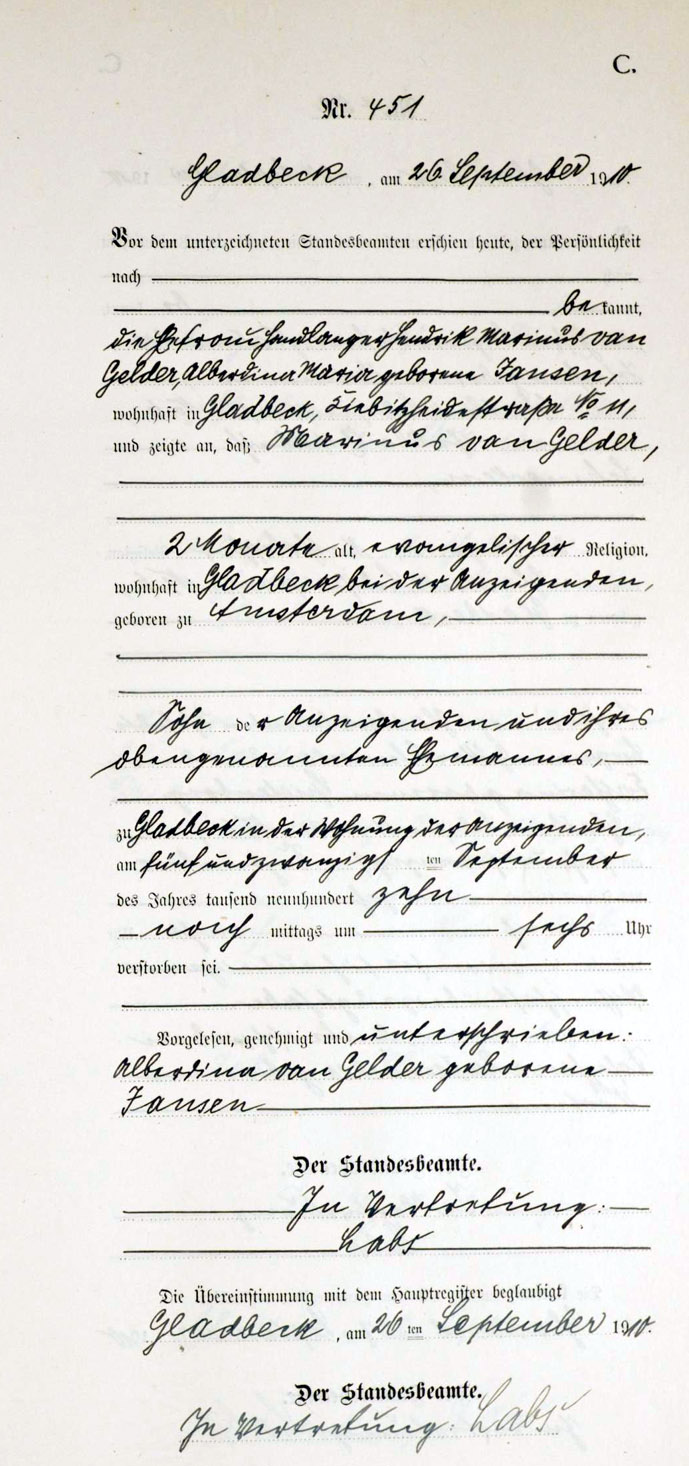 C.
Nr. 451
Gladbeck, am 26. September 1910.
Vor dem unterzeichneten Standesbeamten erschien heute, der Persönlichkeit
nach
be kannt,
die Ehefrau Handlanger Hendrik Marinus van
Gelder, Alberdina Maria geborene Jansen,
wohnhaft in Gladbeck, Kiebitzheidestraße No 11,
und zeigte an, daß Marinus van Gelder,
2 Monate alt, evangelischer Religion,
wohnhaft in Gladbeck bei der Anzeigenden,
geboren zu Amsterdam,
Sohn der Anzeigenden und ihres
obengenannten Ehemannes,
zu Gladbeck in der Wohnung der Anzeigenden,
am fünfundzwanzigsten September
des Jahres tausend neunhundert zehn
nach mittags um sechs Uhr
verstorben sei.
Vorgelesen, genehmigt und unterschrieben:
Alberdina van Gelder geborene
Jansen
Der Standesbeamte.
In Vertretung:
Labs
Die Übereinstimmung mit dem Hauptregister beglaubigt
Gladbeck, am 26ten September 1910.
Der Standesbeamte.
In Vertretung: Labs